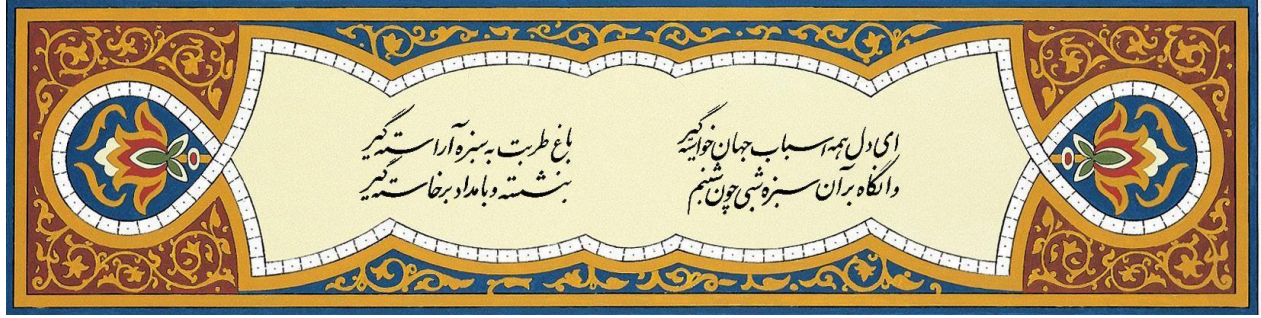 ای دل همه اسباب جهان خواسته گیر
باغ طربت به سبزه آراسته گیر
وانگاه بر آن سبزه شبی چون شبنم
بنشسته و بامداد برخاسته گیر